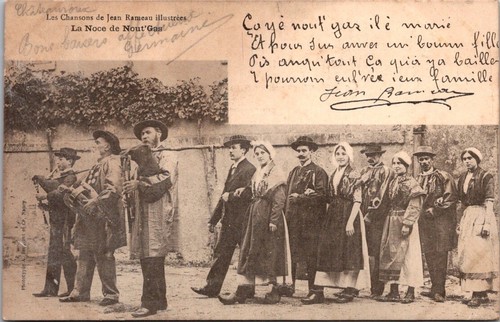 Chateauroux
Les Chansons de Jean Rameau illustrées
La Noce de Nout' Gas
Bons baisers
Germaine
Co y é nout' gas il é marié
Et pour sur anvec un' bounn' fill'
Pis anqu'tout Ça qu'a ya bailler
I pourrom eul'vée ieux famille
Jean Rameau